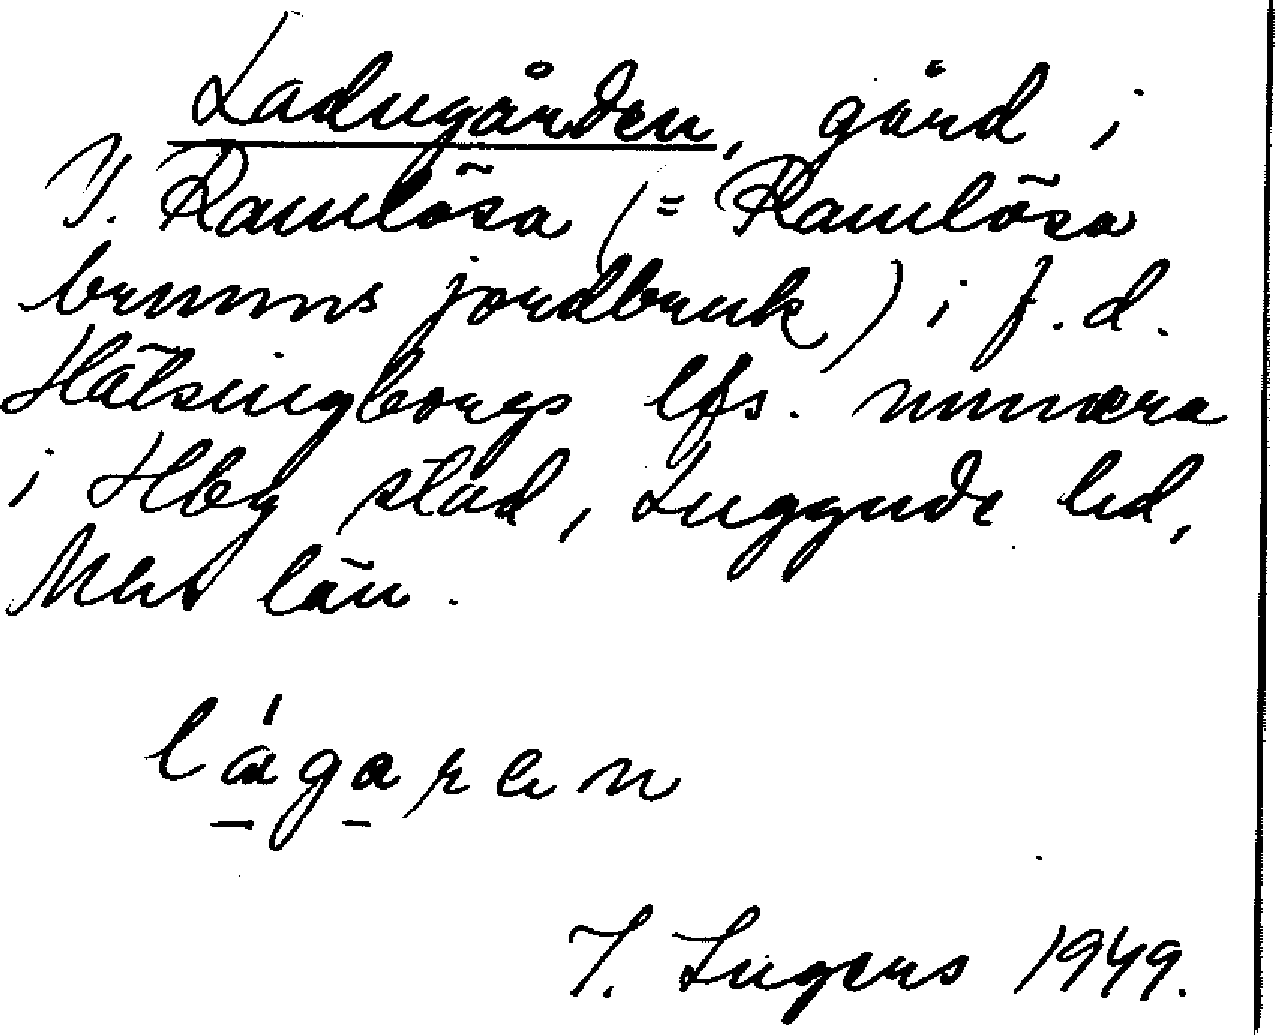 Ladugården, gård i
Y. Ramlösa (= Ramlösa
brunns jordbruk) i f.d.
Hälsingborgs lfs. numera
i Hbg stad, Luggude hd,
Mhs län.
lágaren
I. Ingers 1949.